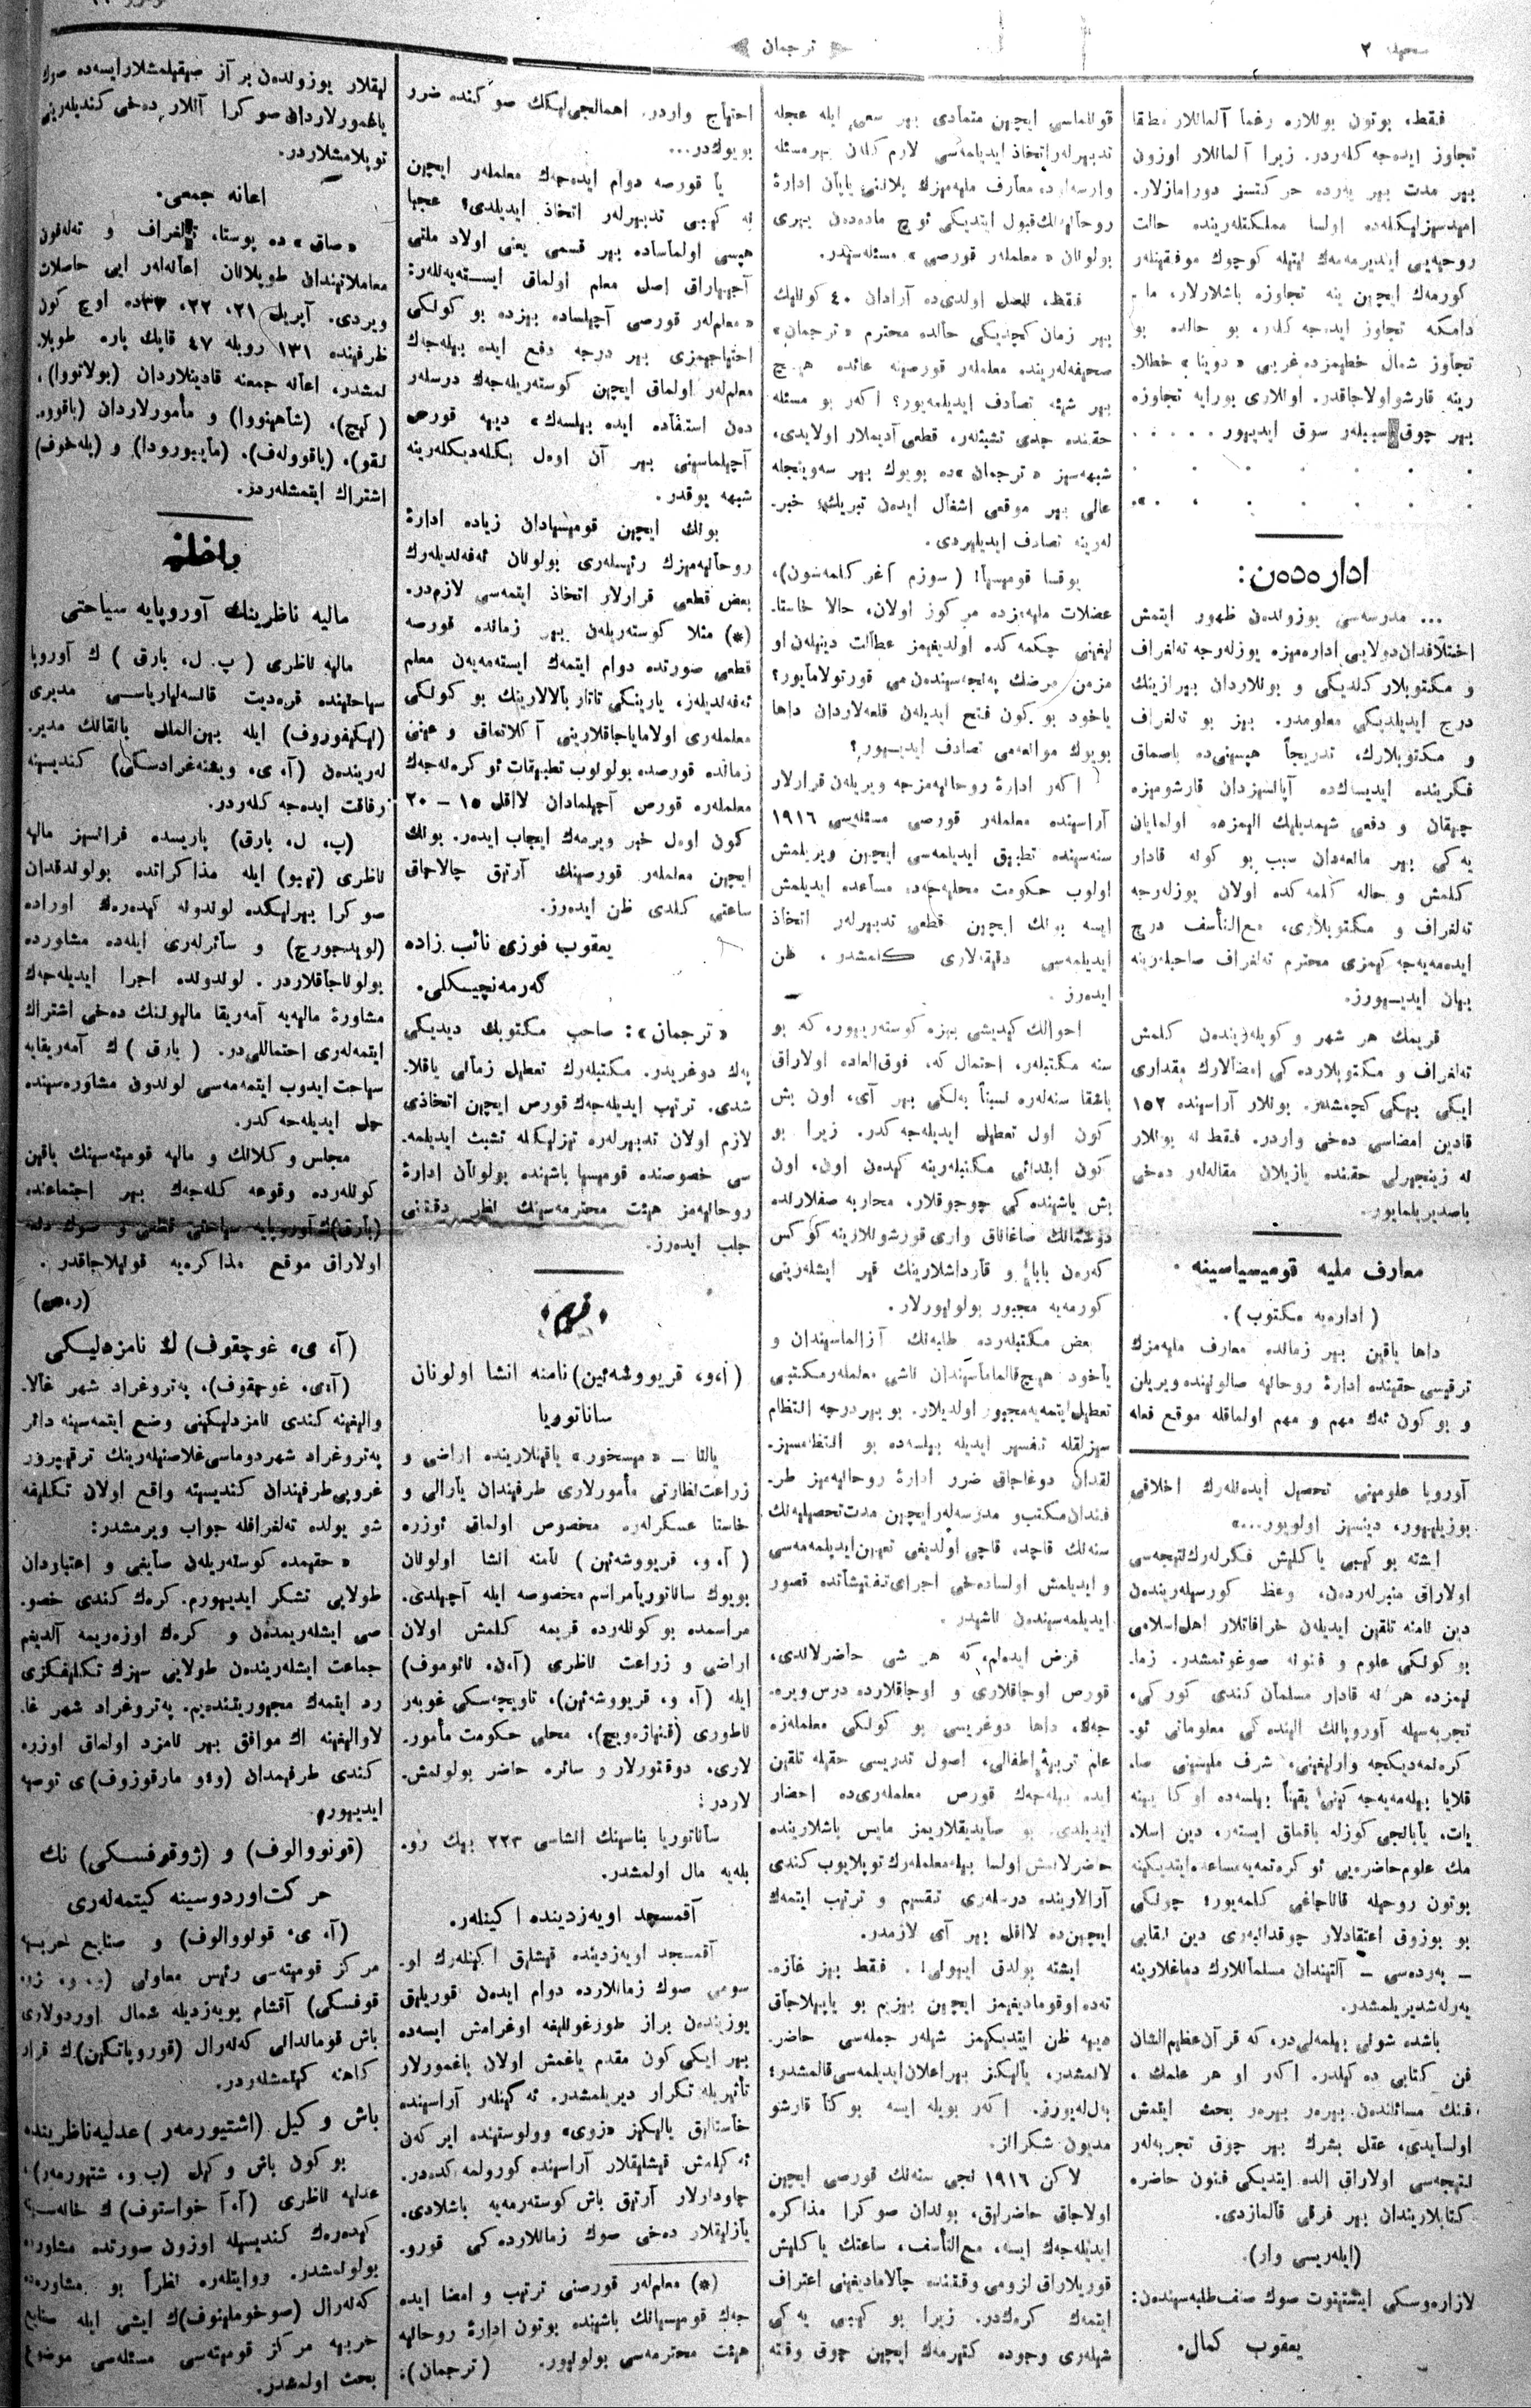 صحیفه ٢
ترجمان
فقط، بوتون بونلاره رغماً آلمانلار مطلقا
تجاوز ایده‌جه‌كلەردر. زیرا آلمانلار اوزون
بیر مدت بیر یەرده حركتسز دورامازلار.
امیدسیزلیكلەده اولسا مملكتلەرینده حالت
روحیەیی ایندیرمەمەك ایتیله كوچوك موفقیتلەر
كورمەك ایچین ینه تجاوزه باشلارلار، ما.
دامكه تجاوز ایده‌جه‌كلەر، بو حالده بو
تجاوز شمال خطیمزده غربی «دوینا» خطلا.
رینه قارشو اولاجاقدر. اونلاری بورایه تجاوزه
بیر چوق سببلەر سوق ایدیيور . . . . .
اداره‌دەن:
... مدرسه‌سی یوزوندەن ظهور ایتمش
اختلافدان دولایی اداره‌میزه یوزلەرجه تەلغراف
و مكتوبلار كلدیكی و بونلاردان بیرازینك
درج ایدیلدیكی معلومدر. بیز بو تەلغراف
و مكتوبلارك، تدریجاً هپسینی‌ده باصماق
فكرینده ایدیساك‌ده آپانسیزدان قارشومیزه
چیقان و دفعی شیمدیلیك الیمزده اولمایان
یەكی بیر مانعه‌دان سبب بو كونه قادار
كلمش و حاله كلمەكده اولان یوزلەرجه
تەلغراف و مكتوبلاری، مع‌التأسف درج
ایدەمەیەجەكیمزی محترم تەلغراف صاحبلەرینه
بیان ایدیيورز.
قریمك هر شهر و كویلەریندەن كلمش
تەلغراف و مكتوبلارده‌كی امضالارك مقداری
ایكی بیكی كچمشدر. بونلار آراسینده ١٥٢
قادین امضاسی دەخی واردر. فقط نه بونلار
نه زینجیرلی حقنده یازیلان مقالەلەر دەخی
باصدیریلمایور.
معارف ملیه قومیسیاسینه.
(اداره‌یه مكتوب).
داها یاقین بیر زمانده معارف ملیەمزك
ترقیسی حقینده ادارۀ روحانیه صالونینده ویریلن
و بو كون ئەك مهم و مهم اولماقله موقع فعله
آوروپا علومینی تحصیل ایدەنلەرك اخلاقی
بوزیلییور، دینسز اولویور...»
ایشته بو كیبی یاكلیش فكرلەرك نتیجه‌سی
اولاراق منبرلەردەن، وعظ كورسیلەریندەن
دین نامنه تلقین ایدیلەن خرافاتلار اهل‌اسلامی
بو كونكی علوم و فنونه صوغوتمشدر. زما.
نیمزده هر نه قادار مسلمان كندی كوركی،
تجربه‌سیله آوروپانك الینده‌كی معلوماتی ئو.
كره‌نمەدیكجه وارلیغینی، شرف ملیسینی صا.
قلایا بیلەمەیەجەكینی یقیناً بیلسەده اوكا یینه
یات، یابانجی كوزله باقماق ایستەر، دین اسلا.
مك علوم حاضره‌یی ئوكرەتمەیه مساعده ایتدیكینه
بوتون روحیله قانا‌جاغی كلمەیور؛ چونكی
بو بوزوق اعتقادلار چوقدانبەری دین نقابی
ـ پەردەسی ـ آلتیندان مسلمانلارك دماغلارینه
یەرلەشدیریلمشدر.
باشده شونی بیلمەلی‌در، كه قرآن عظیم‌الشان
فن كتابی دەكیلدر. اكر او هر علمك،
فنك مسائلندەن بیرەر بیرەر بحث ایتمش
اولسایدی، عقل بشرك بیر چوق تجربەلەر
نتیجەسی اولاراق الده ایتدیكی فنون حاضره
كتابلاریندان بیر فرقی قالمازدی.
(ایله‌ریسی وار).
لازاره‌وسكی اینستیتوت صوك صنف طلبەسیندەن:
یعقوب كمال.
قونلماسی ایچین متمادی بیر سعی ایله عجله
تدبیرلەر اتخاذ ایدیلمەسی لازم كلەن بیر مسئله
وارسەاو‌ده، معارف ملیەمزك پلاننی یاپان ادارۀ
روحانیەنك قبول ایتدیكی ئوچ ماده‌دەن بیری
بولونان «معلملەر قورصی» مسئلەسیدر.
فقط، نصل اولدی‌ده آرادان ٤٠ كونلیك
بیر زمان كچدیكی حالده محترم «ترجمان»
صحیفەلەرینده معلملەر قورصینه عائده هیچ
بیر شیئه تصادف ایدیلمەیور؟ اكر بو مسئله
حقنده جدی تشبثلەر، قطعی آدیملار اولایدی،
شبهه‌سیز «ترجمان»ده بویوك بیر سەوینجله
عالی بیر موقعی اشغال ایدەن تبریك، خبر.
لەرینه تصادف ایدیلیردی.
یوقسا قومیسیا! (سوزم آغر كلمەسون)،
عضلات ملیه‌مزده مركوز اولان، حالا خاستا.
لیغینی چكمەكده اولدیغیمز عطالت دینیلەن او
مزمن مرضك پەنجەسیندەن‌می قورتولامایور؟
یاخود بو كون فتح ایدیلەن قلعەلاردان داها
بویوك موانعەمی تصادف ایدییور؟
اكەر ادارۀ روحانیەمزجه ویریلەن قرارلار
آراسینده معلملەر قورصی مسئلەسی ١٩١٦
سنه‌سینده تطبیق ایدیلمەسی ایچین ویریلمش
اولوب حكومت محلیەجەده مساعده ایدیلمش
ایسه بونك ایچین قطعی تدبیرلەر اتخاذ
ایدیلمەسی دقیقەلاری كلمشدر، ظن
ایدەرز.
احوالك كیدیشی بیزه كوستەرییور، كه بو
سنه مكتبلەر، احتمال كه، فوق‌العاده اولاراق
باشقا سنەلەره نسبتاً بەلكی بیر آی، اون بش
كون اول تعطیل ایدیلەجەكدر. زیرا بو
كون ابتدائی مكتبلەرینه كیدەن اون، اون
بش یاشنده‌كی چوجوقلار، محاربه صفلارنده
دوشمانك صاغاناق واری قورشونلارینه كوكس
كەرەن بابا و قارداشلارینك قیر ایشلەرینی
كورمەیه مجبور بولونیورلار.
بعض مكتبلەرده طلبه‌نك آزالماسیندان و
یاخود هیچ قالماماسیندان ناشی معلملەر مكتبی
تعطیل ایتمەیه مجبور اولدیلار. بو بیر درجه انتظام
سیزلقله تفسیر ایدیله بیلسەده بو انتظامسیز.
لقدان دوغاجاق ضرر ادارۀ روحانیەمیز طر.
فندان مكتب و مدرسەلەر ایچین مدت تحصیلیەنك
سنەنك قاچدە، قاچی اولدیغی تعیین ایدیلمەمەسی
و ایدیلمش اولسادەخی اجرای تفتیشاتده قصور
ایدیلمەسیندەن ناشیدر.
فرض ایدەلم، كه هر شی حاضرلاندی،
قورص اوجاقلاری و اوجاقلارده درس ویره.
جەك، داها دوغریسی بو كونكی معلملەره
علم تربیۀ اطفالی، اصول تدریسی حقیله تلقین
ایده بیلەجەك قورص معلملەری‌ده احضار
ایدیلدی. بو صایدیقلاریمز مایس باشلارینده
حاضرلانمش اولسا بیله معلملەرك توپلایوب كندی
آرالارینده درسلەری تقسیم و ترتیب ایتمەك
ایچین‌ده لااقل بیر آی لازمدر.
ایشته بولدق ایيولی!. فقط بیز غازه.
تەده اوقومادیغیمز ایچین بیزیم بو یاپیلاجاق
دییه ظن ایتدیكیمز شیلەر جملەسی حاضر.
لانمشدر، یالیكز بیر اعلان ایدیلمەسی قالمشدر؛
بەللەیورز. اكەر بویله ایسه بوكا قارشو
مدیون شكرانز.
لاكن ١٩١٦ نجی سنەنك قورصی ایچین
اولاجاق حاضرلیق، بوندان صوكرا مذاكره
ایدیلەجەك ایسه، مع‌التأسف، ساعتك یاكلیش
قوریلاراق لزومی وقتنده چالامادیغینی اعتراف
ایتمەك كرەكدر. زیرا بو كیبی یەكی
شیلەری وجوده كتیرمەك ایچین چوق وقته
احتیاج واردر. اهمالجی‌لیكك صوكنده ضرر
بویوكدر...
یا قورصه دوام ایدەجەك معلملەر ایچین
نه كیبی تدبیرلەر اتخاذ ایدیلدی؟ عجبا
هپسی اولماساده بیر قسمی یعنی اولاد ملتی
آجیاراق اصل معلم اولماق ایستەیەنلەر:
«معلم‌لەر قورصی آچیلساده بیزده بو كونكی
احتیاجیمزی بیر درجه دفع ایده بیلەجەك
معلم‌لەر اولماق ایچین كوستەریلەجەك درسلەر
دەن استفاده ایده بیلسەك» دییه قورص
آچیلماسینی بیر آن اوەل بكلەدیكلەرینه
شبهه یوقدر.
بونك ایچین قومیسیادان زیاده ادارۀ
روحانیەمیزك رئیسلەری بولونان ئەفەندیلەرك
بعض قطعی قرارلار اتخاذ ایتمەسی لازم‌در.
(*) مثلا كوستەریلەن بیر زمانده قورصه
قطعی صورتده دوام ایتمەك ایستەمەیەن معلم
ئەفەندیلەر، یارینكی تاتار بالالارینك بو كونكی
معلملەری اولامایاجاقلارینی آكلاتماق و عینی
زمانده قورصده بولونوب تطبیقات ئوكرەنەجەك
معلملەره قورص آچیلمادان لااقل ١٥ ـ ٢٠
كون اوەل خبر ویرمەك ایجاب ایدەر. بونك
ایچین معلملەر قورصینك آرتیق چالاجاق
ساعتی كلدی ظن ایدەرز.
یعقوب فوزی نائب زاده
كەرمەنچیكلی.
«ترجمان»: صاحب مكتوبك دیدیكی
پەك دوغریدر. مكتبلەرك تعطیل زمانی یاقلا.
شدی. ترتیب ایدیلەجەك قورص ایچین اتخاذی
لازم اولان تدبیرلەره تیزلیكله تشبث ایدیلمه.
سی خصوصنده قومیسیا باشینده بولونان ادارۀ
روحانیەمز هیئت محترمەسینك نظر دقتنی
جلب ایدەرز.
قریم
(آ.و. قریووشەئین) نامنه انشا اولونان
ساناتوریا
یالتا ــ «میسخور» یاقینلارینده اراضی و
زراعت نظارتی مأمورلاری طرفیندان یارالی و
خاستا عسكرلەره مخصوص اولماق ئوزره
(آ. و. قریووشەئین) نامنه انشا اولونان
بویوك ساناتوریا مراسم مخصوصه ایله آچیلدی.
مراسمده بو كونلەرده قریمه كلمش اولان
اراضی و زراعت ناظری (آ.ن. نائوموف)
ایله (آ. و. قریووشەئین)، تاوریچەسكی غوبەر
ناطوری (قنیازەویچ)، محلی حكومت مأمور.
لاری، دوقتورلار و سائره حاضر بولونمش.
لاردر.
ساناتوریا بناسینك انشاسی ٢٢٣ بیك رو.
بلەیه مال اولمشدر.
آقمسجد اویەزدینده اكینلەر.
آقمسجد اویەزدینده قیشلق اكینلەرك او.
سومی صوك زمانلارده دوام ایدەن قوریلیق
یوزیندەن براز طورغونلیغه اوغرامش ایسەده
بیر ایكی كون مقدم یاغمش اولان یاغمورلار
تأثیریله تكرار دیریلمشدر. ئەكینلەر آراسینده
خاستالیق یالیكز «زوی» وولوستینده ایركەن
ئەكیلمش قیشلیقلار آراسینده كورولمەكدەدر.
چاودارلار آرتیق باش كوستەرمەیه باشلادی.
یازلیقلار دەخی صوك زمانلارده‌كی قورو.
(*) معلم‌لەر قورصنی ترتیب و امضا ایده
جەك قومیسیانك باشینده بوتون ادارۀ روحانیه
هیئت محترمەسی بولونیور. (ترجمان).
لیقلار یوزوندەن بر آز صیقیلمشلار ایسەده صوك
یاغمورلاردان صوكرا آنلار دەخی كندیلەرینی
توپلامشلاردر.
اعانه جمعی.
«صاق» ده پوستا، تلغراف و تەلەفون
معاملاتیندان طوپلانان اعانەلەر ایی حاصلات
ویردی. آپریل ٢١، ٢٢، ٢٣ده اوچ كون
ظرفینده ١٣١ روبله ٤٧ قاپك پاره طوپلا.
نمشدر، اعانه جمعنه قادینلاردان (بولانووا)،
(كیچ)، (شاهینووا) و مأمورلاردان (باقوو.
نقو)، (یاقوولەف)، (مایبورودا) و (پلەخوف)
اشتراك ایتمشلەردر.
داخلیه
مالیه ناظرینك آوروپایه سیاحتی
مالیه ناظری (پ. ل. بارق) ك آوروپا
سیاحتینده قرەدیت قانسەلیاریاسی مدیری
(نیكیفوروف) ایله بین‌الملل بانقانك مدیر.
لەریندەن (آ. ی. ویشنەغرادسكی) كندیسینه
رفاقت ایدەجەكلەردر.
(پ. ل. بارق) پاریسده فرانسیز مالیه
ناظری (ریبو) ایله مذاكراتده بولوندقدان
صوكرا بیرلیكده لوندونه كیدەرەك اوراده
(لوید جورج) و سائرلەری ایلەده مشاوره‌ده
بولوناجاقلاردر. لوندونده اجرا ایدیلەجەك
مشاورۀ مالیەیه آمەریقا مالیونك دەخی اشتراك
ایتمەلەری احتماللی‌در. (بارق) ك آمەریقایه
سیاحت ایدوب ایتمەمەسی لوندون مشاوره‌سینده
حل ایدیلەجەكدر.
مجلس وكلانك و مالیه قومیته‌سینك یاقین
كونلەرده وقوعه كلەجەك بیر اجتماعنده
(بارق)ك آوروپایه سیاحتی قطعی و صوك دفعه
اولاراق موقع مذاكره‌یه قونیلاجاقدر.
(ر.ص)
(آ. ی. غوچقوف) ك نامزدلیكی
(آ.ی. غوچقوف)، پەتروغراد شهر غالا.
والیغینه كندی نامزدلیكینی وضع ایتمەسینه دائر
پەتروغراد شهر دوماسی غلاصنیلەرینك ترقیپرور
غروپی طرفیندان كندیسینه واقع اولان تكلیفه
شو یولده تەلغرافله جواب ویرمشدر:
«حقیمده كوستەریلەن صایغی و اعتباردان
طولایی تشكر ایدییورم. كرەك كندی خصو.
صی ایشلەریمدەن و كرەك اوزەریمه آلدیغم
جماعت ایشلەریندەن طولایی سیزك تكلیفكزی
رد ایتمەك مجبوریتنده‌یم. پەتروغراد شهر غا.
لاوالیغینه اك موافق بیر نامزد اولماق اوزره
كندی طرفیمدان (و.و. مارقوزوف)ی توصیه
ایدییورم.
(قونووالوف) و (ژوقوفسكی) نك
حركت اوردوسینه كیتمەلەری
(آ. ی. قونووالوف) و صنایع حربیه
مركز قومیته‌سی رئیس معاونی (و. و. ژو.
قوفسكی) آقشام پویەزدیله شمال اوردولاری
باش قوماندانی كەنەرال (قوروپاتكین)ك قرار
كاهنه كیتمشلەردر.
باش وكیل (اشتیورمەر) عدلیه ناظرینده
بو كون باش وكیل (ب. و. شتیورمەر)،
عدلیه ناظری (آ.آ خواستوف) ك خانەسینه
كیدەرەك كندیسیله اوزون صورتده مشاوره
بولونمشدر. روایتلەره نظراً بو مشاوره‌ده
كەنەرال (صوخوملینوف)ك ایشی ایله صنایع
حربیه مركز قومیته‌سی مسئلەسی موضوع
بحث اولمشدر.